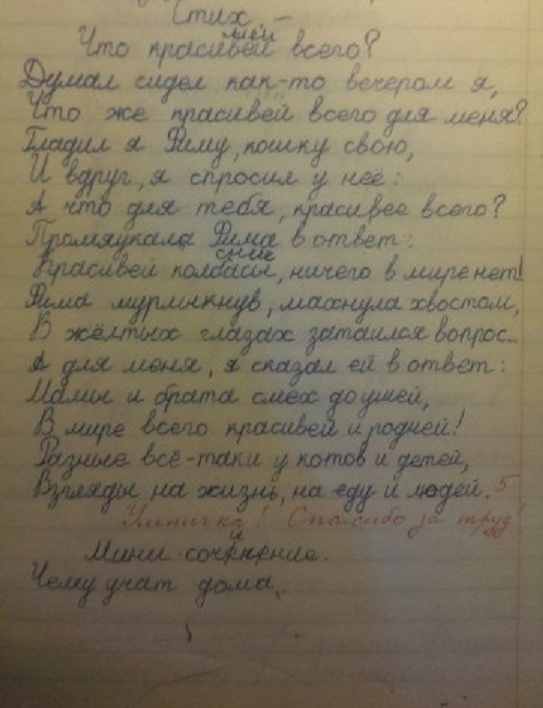 Стих. –
Что красивей всего?
Думал сидел как-то вечером я,
Что же красивей всего для меня?
Гладил я Риму, кошку свою,
И вдруг, я спросил у неё:
А что для тебя, красивее всего?
Промяукала Рима в ответ:
Красивей колбасы, ничего в мире нет!
Рима мурлыкнув, махнула хвостом,
В жёлтых глазах затаился вопрос...
А для меня, я сказал ей в ответ:
Мамы и брата смех до ушей,
В мире всего красивей и родней!
Разные всё-таки у котов и детей,
Взгляды на жизнь, на еду и людей. 5
Умничка! Спасибо за труд!
Мини сочинение.
Чему учат дома.